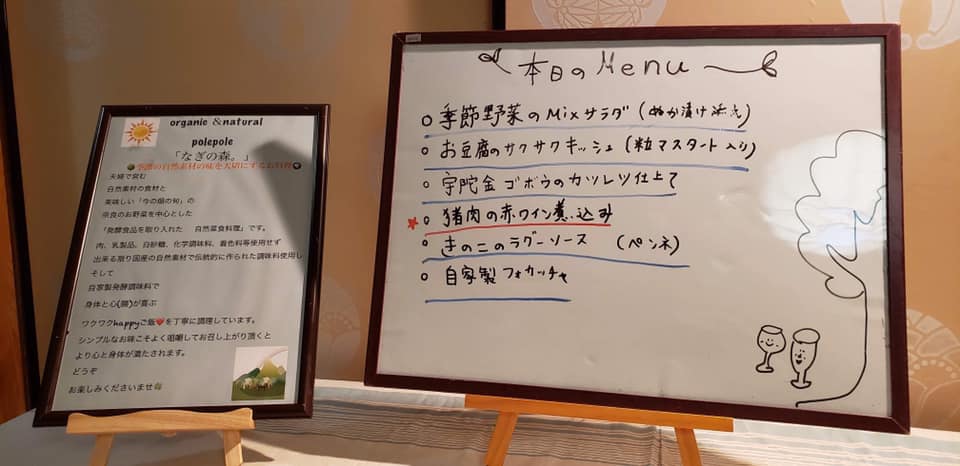 organic &natural
polepole
「なぎの森。」
季節の自然素材の味を大切にするお料理
夫婦で営む
自然素材の食材と
美味しい「今の畑の旬」の
奈良のお野菜を中心とした
「発酵食品を取り入れた 自然菜食料理」です。
肉、乳製品、白砂糖、化学調味料、着色料等使用せず
出来る限り国産の自然素材で伝統的に作られた調味料使用し
そして
自家製発酵調味料で
身体と心(腸)が喜ぶ
ワクワクhappyご飯❤を丁寧に調理しています。
シンプルなお味こそよく咀嚼してお召し上がり頂くと
より心と身体が満たされます。
どうぞ
お楽しみくださいませ
本日のMenu
季節野菜のMixサラダ(ぬか漬け添え)
お豆腐のサクサクキッシュ(粒マスタード入り)
宇陀金ゴボウのカツレツ仕立て
猪肉の赤ワイン煮込み
きのこのラグーソース (ペンネ)
自家製フォカッチャ